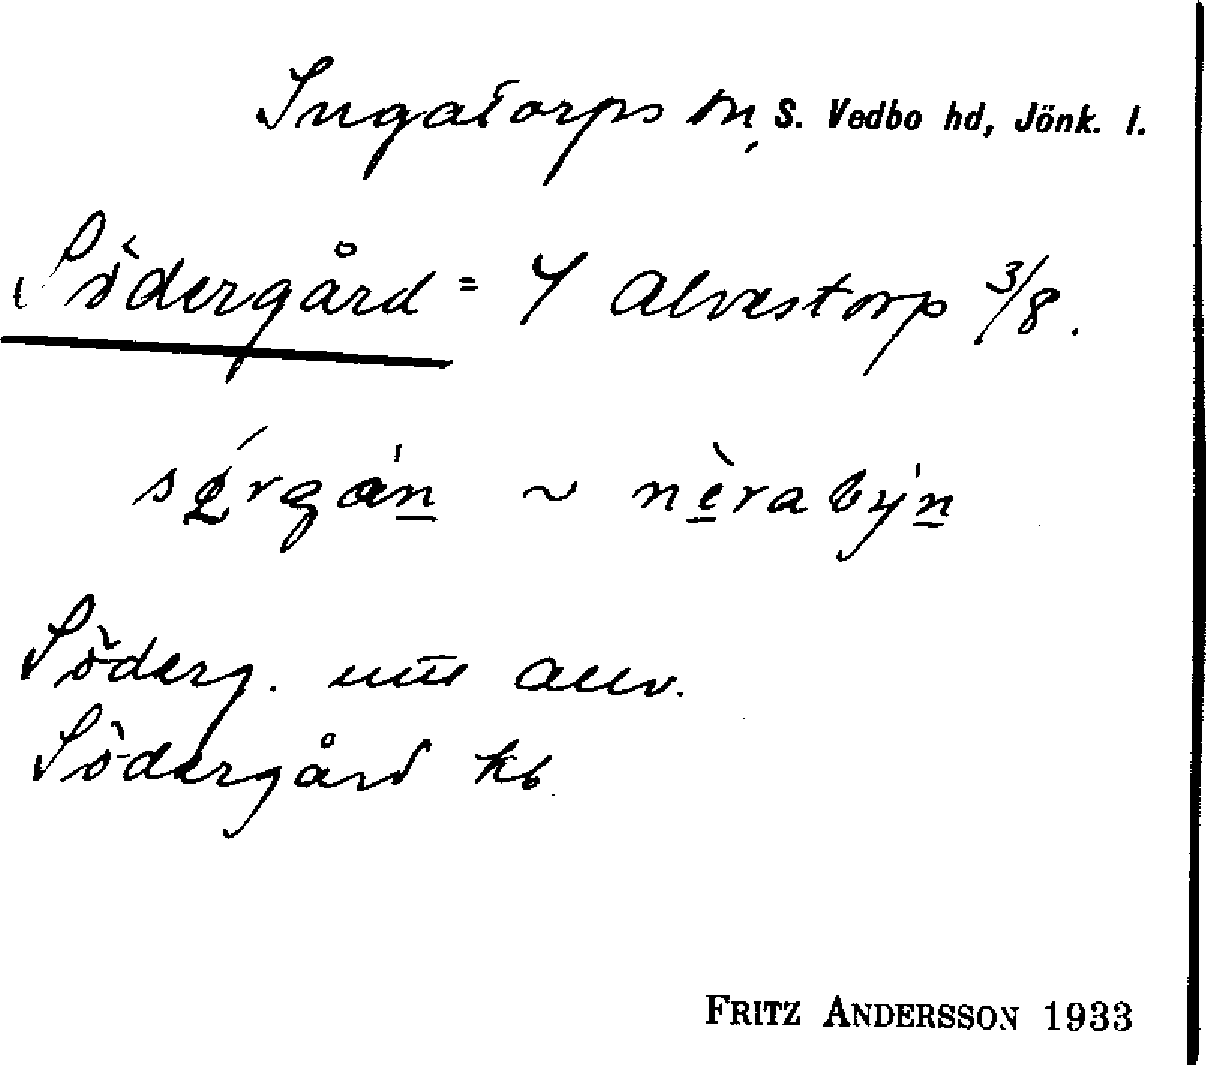 Ingatorps sn, S. Vedbo hd, Jönk. l.
Södergård = Y Alvestorp 3/8.
sǿrgán ~ nèrabýn
Söderg. allv.
Södergård kb
FRITZ ANDERSSON 1933